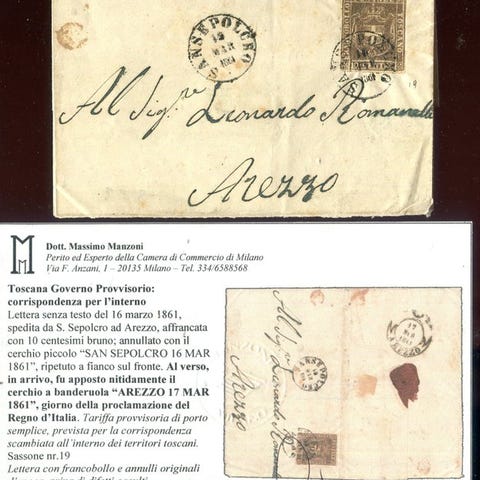 SANSEPOLCRO
MAR
1861
TOSCANO
Al Sig.re Leonardo Romanelli
Arezzo
M
Dott. Massimo Manzoni
Perito ed Esperto della Camera di Commercio di Milano
Via F. Anzani, 1 – 20135 Milano – Tel. 334/6588568
Toscana Governo Provvisorio:
corrispondenza per l'interno
Lettera senza testo del 16 marzo 1861,
spedita da S. Sepolcro ad Arezzo, affrancata
con 10 centesimi bruno; annullato con il
cerchio piccolo "SAN SEPOLCRO 16 MAR
1861", ripetuto a fianco sul fronte. Al verso,
in arrivo, fu apposto nitidamente il
cerchio a banderuola "AREZZO 17 MAR
1861", giorno della proclamazione del
Regno d'Italia. Tariffa provvisoria di porto
semplice, prevista per la corrispondenza
scambiata all'interno dei territori toscani.
Sassone nr.19
Lettera con francobollo e annulli originali
Al Sig.re Leonardo
Arezzo
SANSEPOLCRO
17
MAR
1861
AREZZO